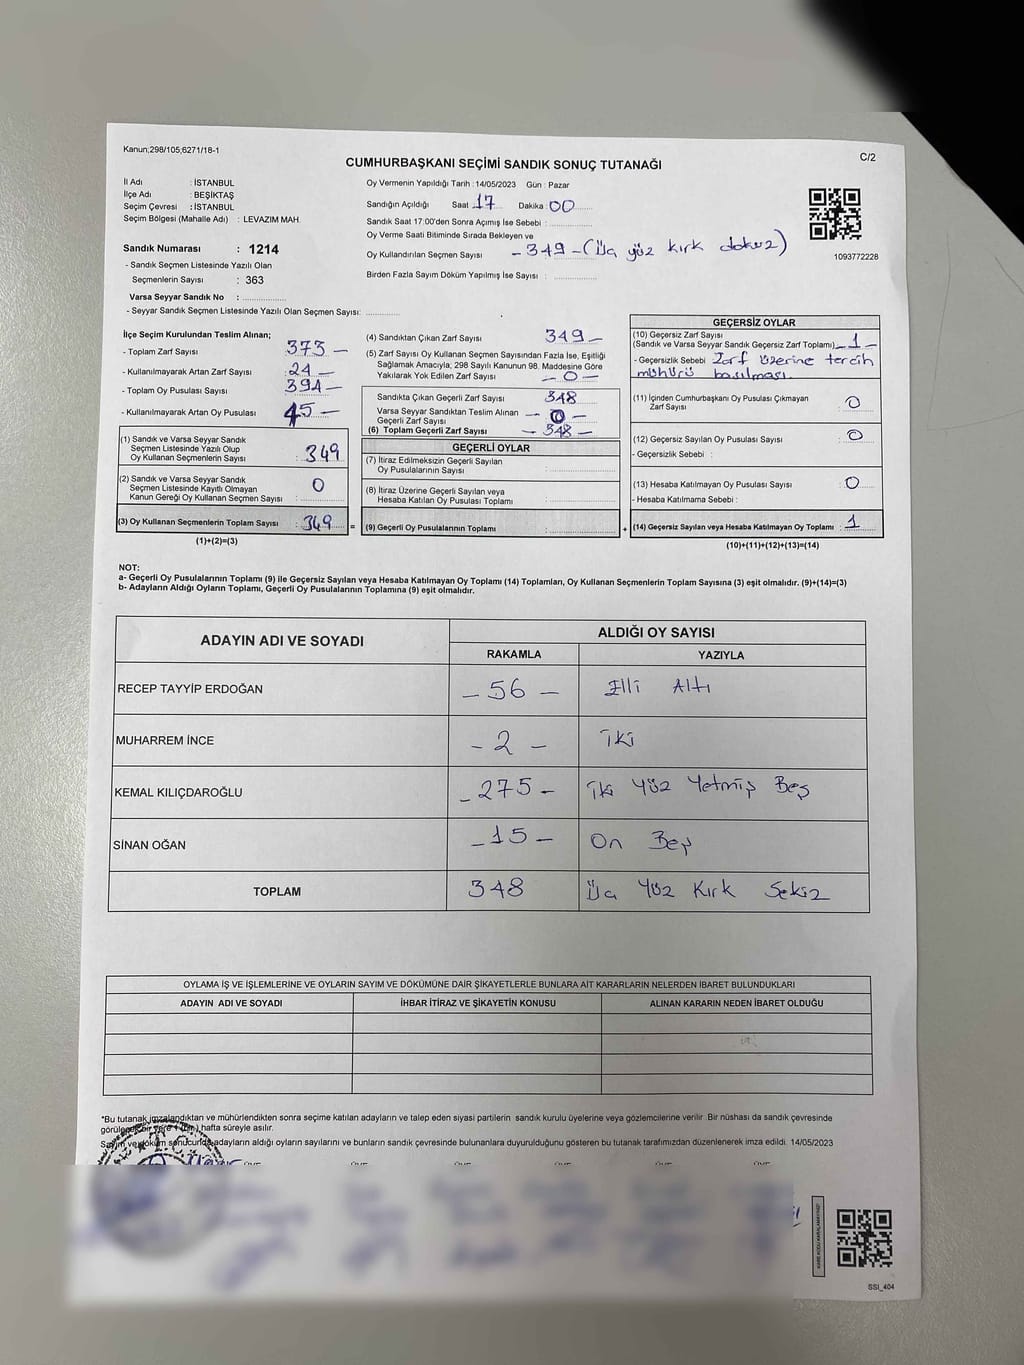 Kanun;298/105;6271/18-1
C/2
CUMHURBAŞKANI SEÇİMİ SANDIK SONUÇ TUTANAĞI
İl Adı : İSTANBUL
İlçe Adı : BEŞİKTAŞ
Seçim Çevresi : İSTANBUL
Seçim Bölgesi (Mahalle Adı) : LEVAZIM MAH.
Sandık Numarası : 1214
- Sandık Seçmen Listesinde Yazılı Olan
Seçmenlerin Sayısı : 363
Varsa Seyyar Sandık No :
- Seyyar Sandık Seçmen Listesinde Yazılı Olan Seçmen Sayısı:
Oy Vermenin Yapıldığı Tarih : 14/05/2023 Gün : Pazar
Sandığın Açıldığı Saat 17 Dakika : 00
Sandık Saat 17:00'den Sonra Açımış İse Sebebi :
Oy Verme Saati Bitiminde Sırada Bekleyen ve
Oy Kullandırılan Seçmen Sayısı - 349 - (Üç yüz kırk dokuz)
Birden Fazla Sayım Döküm Yapılmış İse Sayısı :
1093772228
İlçe Seçim Kurulundan Teslim Alınan;
- Toplam Zarf Sayısı 373 -
- Kullanılmayarak Artan Zarf Sayısı : 24 -
- Toplam Oy Pusulası Sayısı : 394 -
- Kullanılmayarak Artan Oy Pusulası 45 -
(1) Sandık ve Varsa Seyyar Sandık
Seçmen Listesinde Yazılı Olup
Oy Kullanan Seçmenlerin Sayısı : 349
(2) Sandık ve Varsa Seyyar Sandık
Seçmen Listesinde Kayıtlı Olmayan
Kanun Gereği Oy Kullanan Seçmen Sayısı : 0
(3) Oy Kullanan Seçmenlerin Toplam Sayısı : 349 =
(1)+(2)=(3)
(4) Sandıktan Çıkan Zarf Sayısı 349 -
(5) Zarf Sayısı Oy Kullanan Seçmen Sayısından Fazla İse, Eşitliği
Sağlamak Amacıyla; 298 Sayılı Kanunun 98. Maddesine Göre
Yakılarak Yok Edilen Zarf Sayısı - 0 -
Sandıkta Çıkan Geçerli Zarf Sayısı 348
Varsa Seyyar Sandıktan Teslim Alınan
Geçerli Zarf Sayısı - 0 -
(6) Toplam Geçerli Zarf Sayısı - 348 -
GEÇERLİ OYLAR
(7) İtiraz Edilmeksizin Geçerli Sayılan
Oy Pusulalarının Sayısı :
(8) İtiraz Üzerine Geçerli Sayılan veya
Hesaba Katılan Oy Pusulası Toplamı :
(9) Geçerli Oy Pusulalarının Toplamı : +
GEÇERSİZ OYLAR
(10) Geçersiz Zarf Sayısı
(Sandık ve Varsa Seyyar Sandık Geçersiz Zarf Toplamı) - 1 -
- Geçersizlik Sebebi Zarf üzerine tercih
mühürü basılması.
(11) İçinden Cumhurbaşkanı Oy Pusulası Çıkmayan
Zarf Sayısı : 0
(12) Geçersiz Sayılan Oy Pusulası Sayısı : 0
- Geçersizlik Sebebi :
(13) Hesaba Katılmayan Oy Pusulası Sayısı : 0
- Hesaba Katılmama Sebebi :
(14) Geçersiz Sayılan veya Hesaba Katılmayan Oy Toplamı : 1
(10)+(11)+(12)+(13)=(14)
NOT:
a- Geçerli Oy Pusulalarının Toplamı (9) ile Geçersiz Sayılan veya Hesaba Katılmayan Oy Toplamı (14) Toplamları, Oy Kullanan Seçmenlerin Toplam Sayısına (3) eşit olmalıdır. (9)+(14)=(3)
b- Adayların Aldığı Oyların Toplamı, Geçerli Oy Pusulalarının Toplamına (9) eşit olmalıdır.
ADAYIN ADI VE SOYADI ALDIĞI OY SAYISI
RAKAMLA YAZIYLA
RECEP TAYYİP ERDOĞAN - 56 - Elli Altı
MUHARREM İNCE - 2 - iki
KEMAL KILIÇDAROĞLU - 275 - iki Yüz Yetmiş Beş
SİNAN OĞAN - 15 - On Beş
TOPLAM 348 Üç Yüz Kırk Sekiz
OYLAMA İŞ VE İŞLEMLERİNE VE OYLARIN SAYIM VE DÖKÜMÜNE DAİR ŞİKAYETLERLE BUNLARA AİT KARARLARIN NELERDEN İBARET BULUNDUKLARI
ADAYIN ADI VE SOYADI İHBAR İTİRAZ VE ŞİKAYETİN KONUSU ALINAN KARARIN NEDEN İBARET OLDUĞU
*Bu tutanak imzalandıktan ve mühürlendikten sonra seçime katılan adayların ve talep eden siyasi partilerin sandık kurulu üyelerine veya gözlemcilerine verilir. Bir nüshası da sandık çevresinde
görülecek bir yere 1 hafta süreyle asılır.
Sayım ve döküm sonucunda adayların aldığı oyların sayılarını ve bunların sandık çevresinde bulunanlara duyurulduğunu gösteren bu tutanak tarafımızdan düzenlenerek imza edildi. 14/05/2023
SSI_404